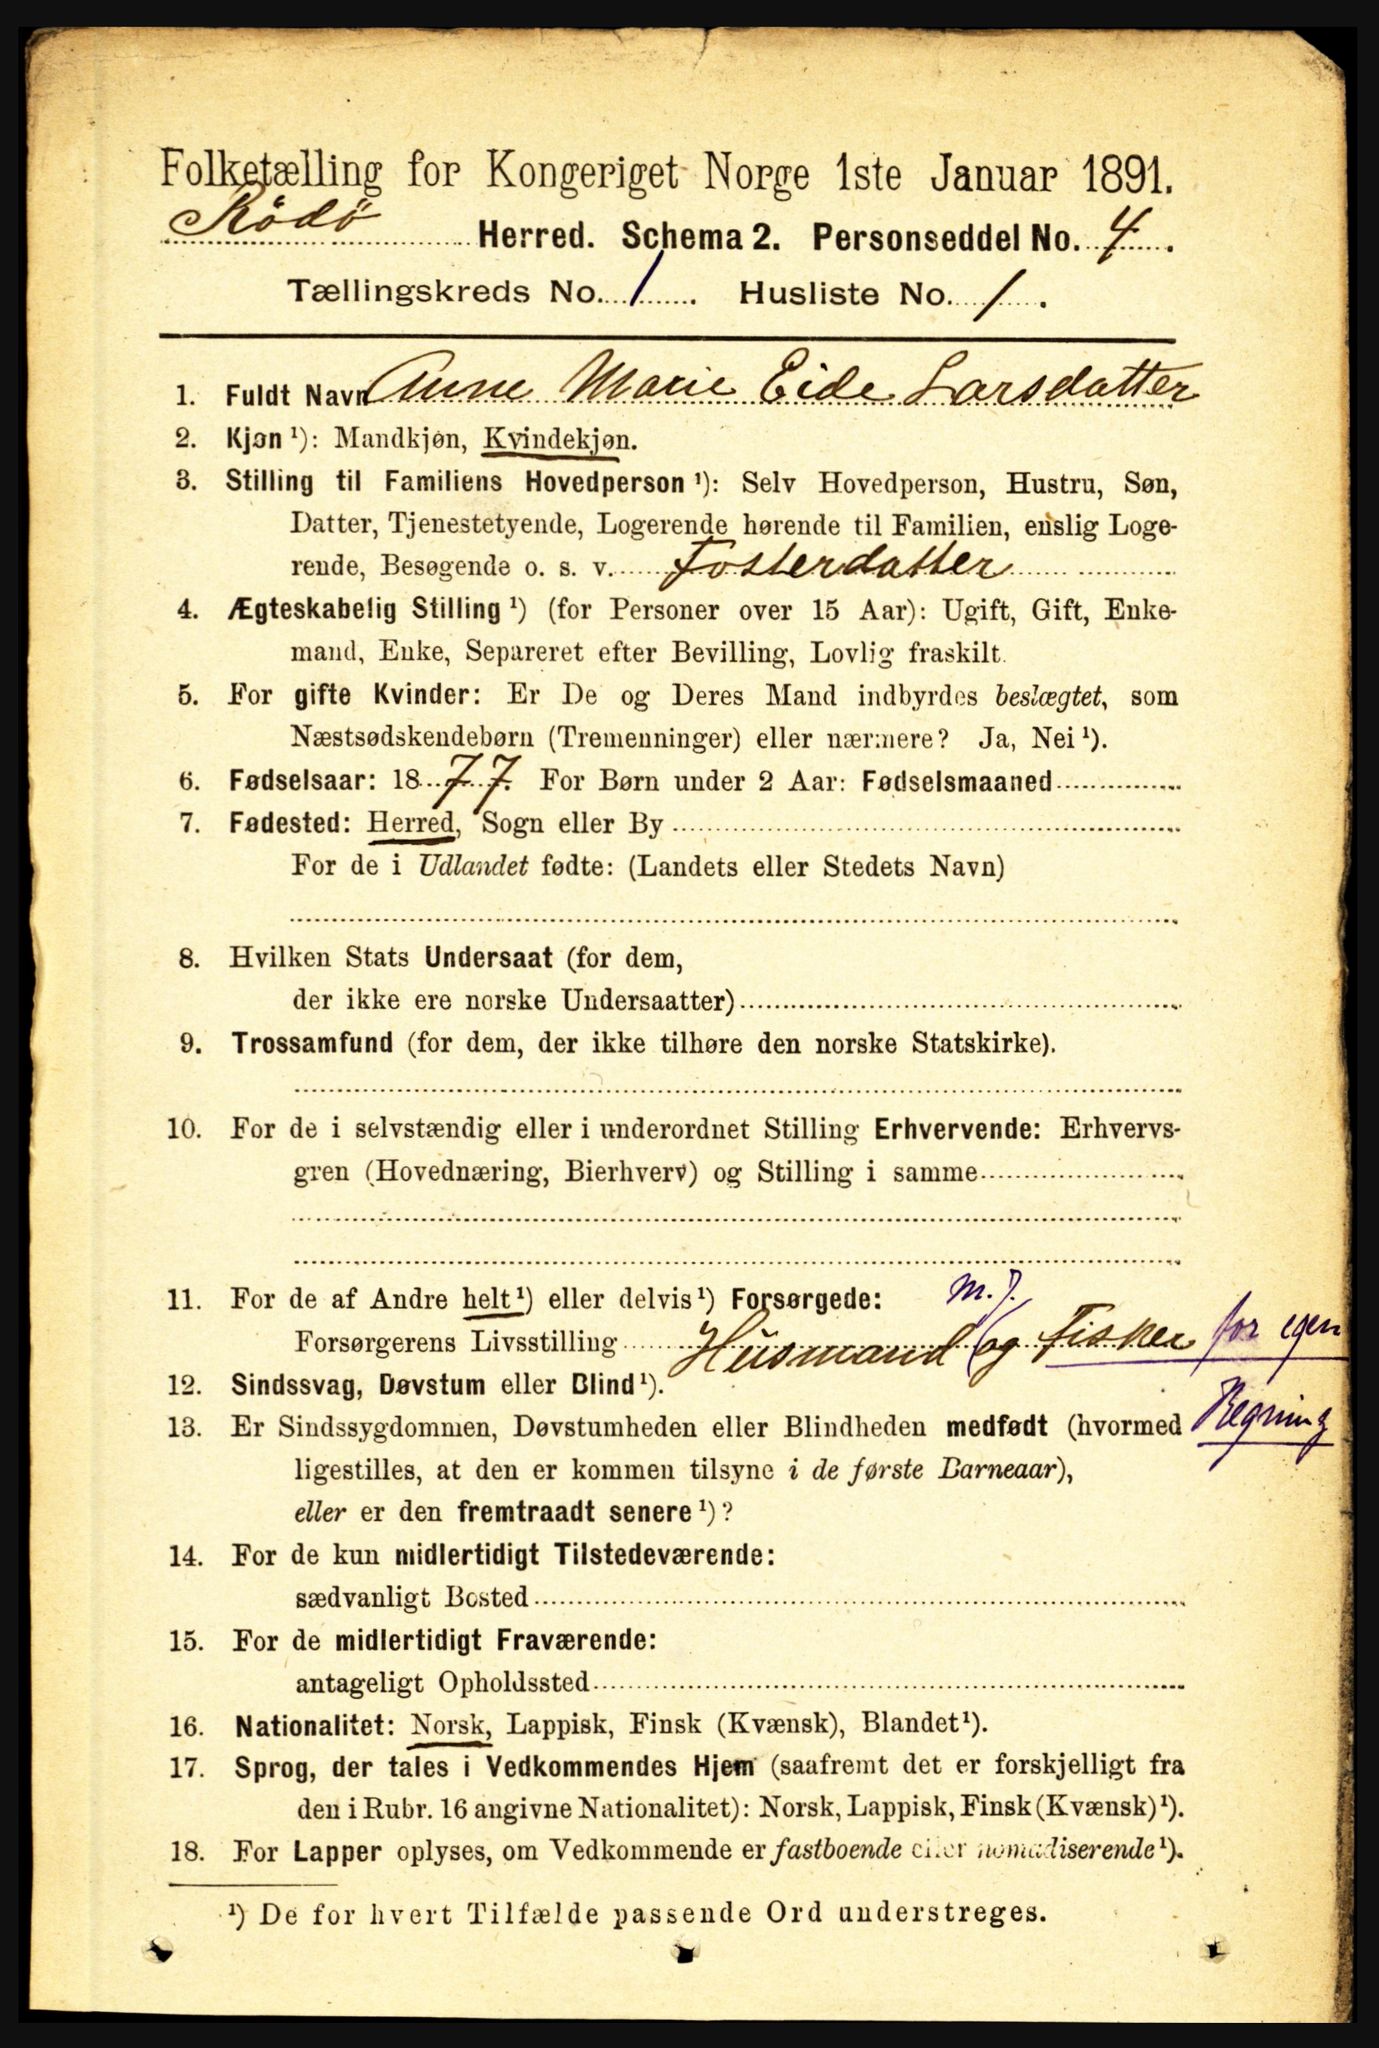 Folketælling for Kongeriget Norge 1ste Januar 1891.
Rödö Herred. Schema 2. Personseddel No. 4.
Tællingskreds No. 1. Husliste No. 1.
1. Fuldt Navn Anne Marie Eide Larsdatter
2. Kjøn ¹): Mandkjøn, Kvindekjøn.
3. Stilling til Familiens Hovedperson ¹): Selv Hovedperson, Hustru, Søn,
Datter, Tjenestetyende, Logerende hørende til Familien, enslig Loge-
rende, Besøgende o. s. v. Fosterdatter
4. Ægteskabelig Stilling ¹) (for Personer over 15 Aar): Ugift, Gift, Enke-
mand, Enke, Separeret efter Bevilling, Lovlig fraskilt.
5. For gifte Kvinder: Er De og Deres Mand indbyrdes beslægtet, som
Næstsødskendebørn (Tremenninger) eller nærmere? Ja, Nei ¹).
6. Fødselsaar: 1877. For Børn under 2 Aar: Fødselsmaaned
7. Fødested: Herred, Sogn eller By
For de i Udlandet fødte: (Landets eller Stedets Navn)
8. Hvilken Stats Undersaat (for dem,
der ikke ere norske Undersaatter)
9. Trossamfund (for dem, der ikke tilhøre den norske Statskirke).
10. For de i selvstændig eller i underordnet Stilling Erhvervende: Erhvervs-
gren (Hovednæring, Bierhverv) og Stilling i samme
11. For de af Andre helt ¹) eller delvis ¹) Forsørgede: m. J.
Forsørgerens Livsstilling Husmand (og Fisker for egen
12. Sindssvag, Døvstum eller Blind ¹).
Regning
13. Er Sindssygdommen, Døvstumheden eller Blindheden medfødt (hvormed
ligestilles, at den er kommen tilsyne i de første Barneaar),
eller er den fremtraadt senere ¹)?
14. For de kun midlertidigt Tilstedeværende:
sædvanligt Bosted
15. For de midlertidigt Fraværende:
antageligt Opholdssted
16. Nationalitet: Norsk, Lappisk, Finsk (Kvænsk), Blandet ¹).
17. Sprog, der tales i Vedkommendes Hjem (saafremt det er forskjelligt fra
den i Rubr. 16 angivne Nationalitet): Norsk, Lappisk, Finsk (Kvænsk) ¹).
18. For Lapper oplyses, om Vedkommende er fastboende eller nomadiserende ¹).
¹) De for hvert Tilfælde passende Ord understreges.